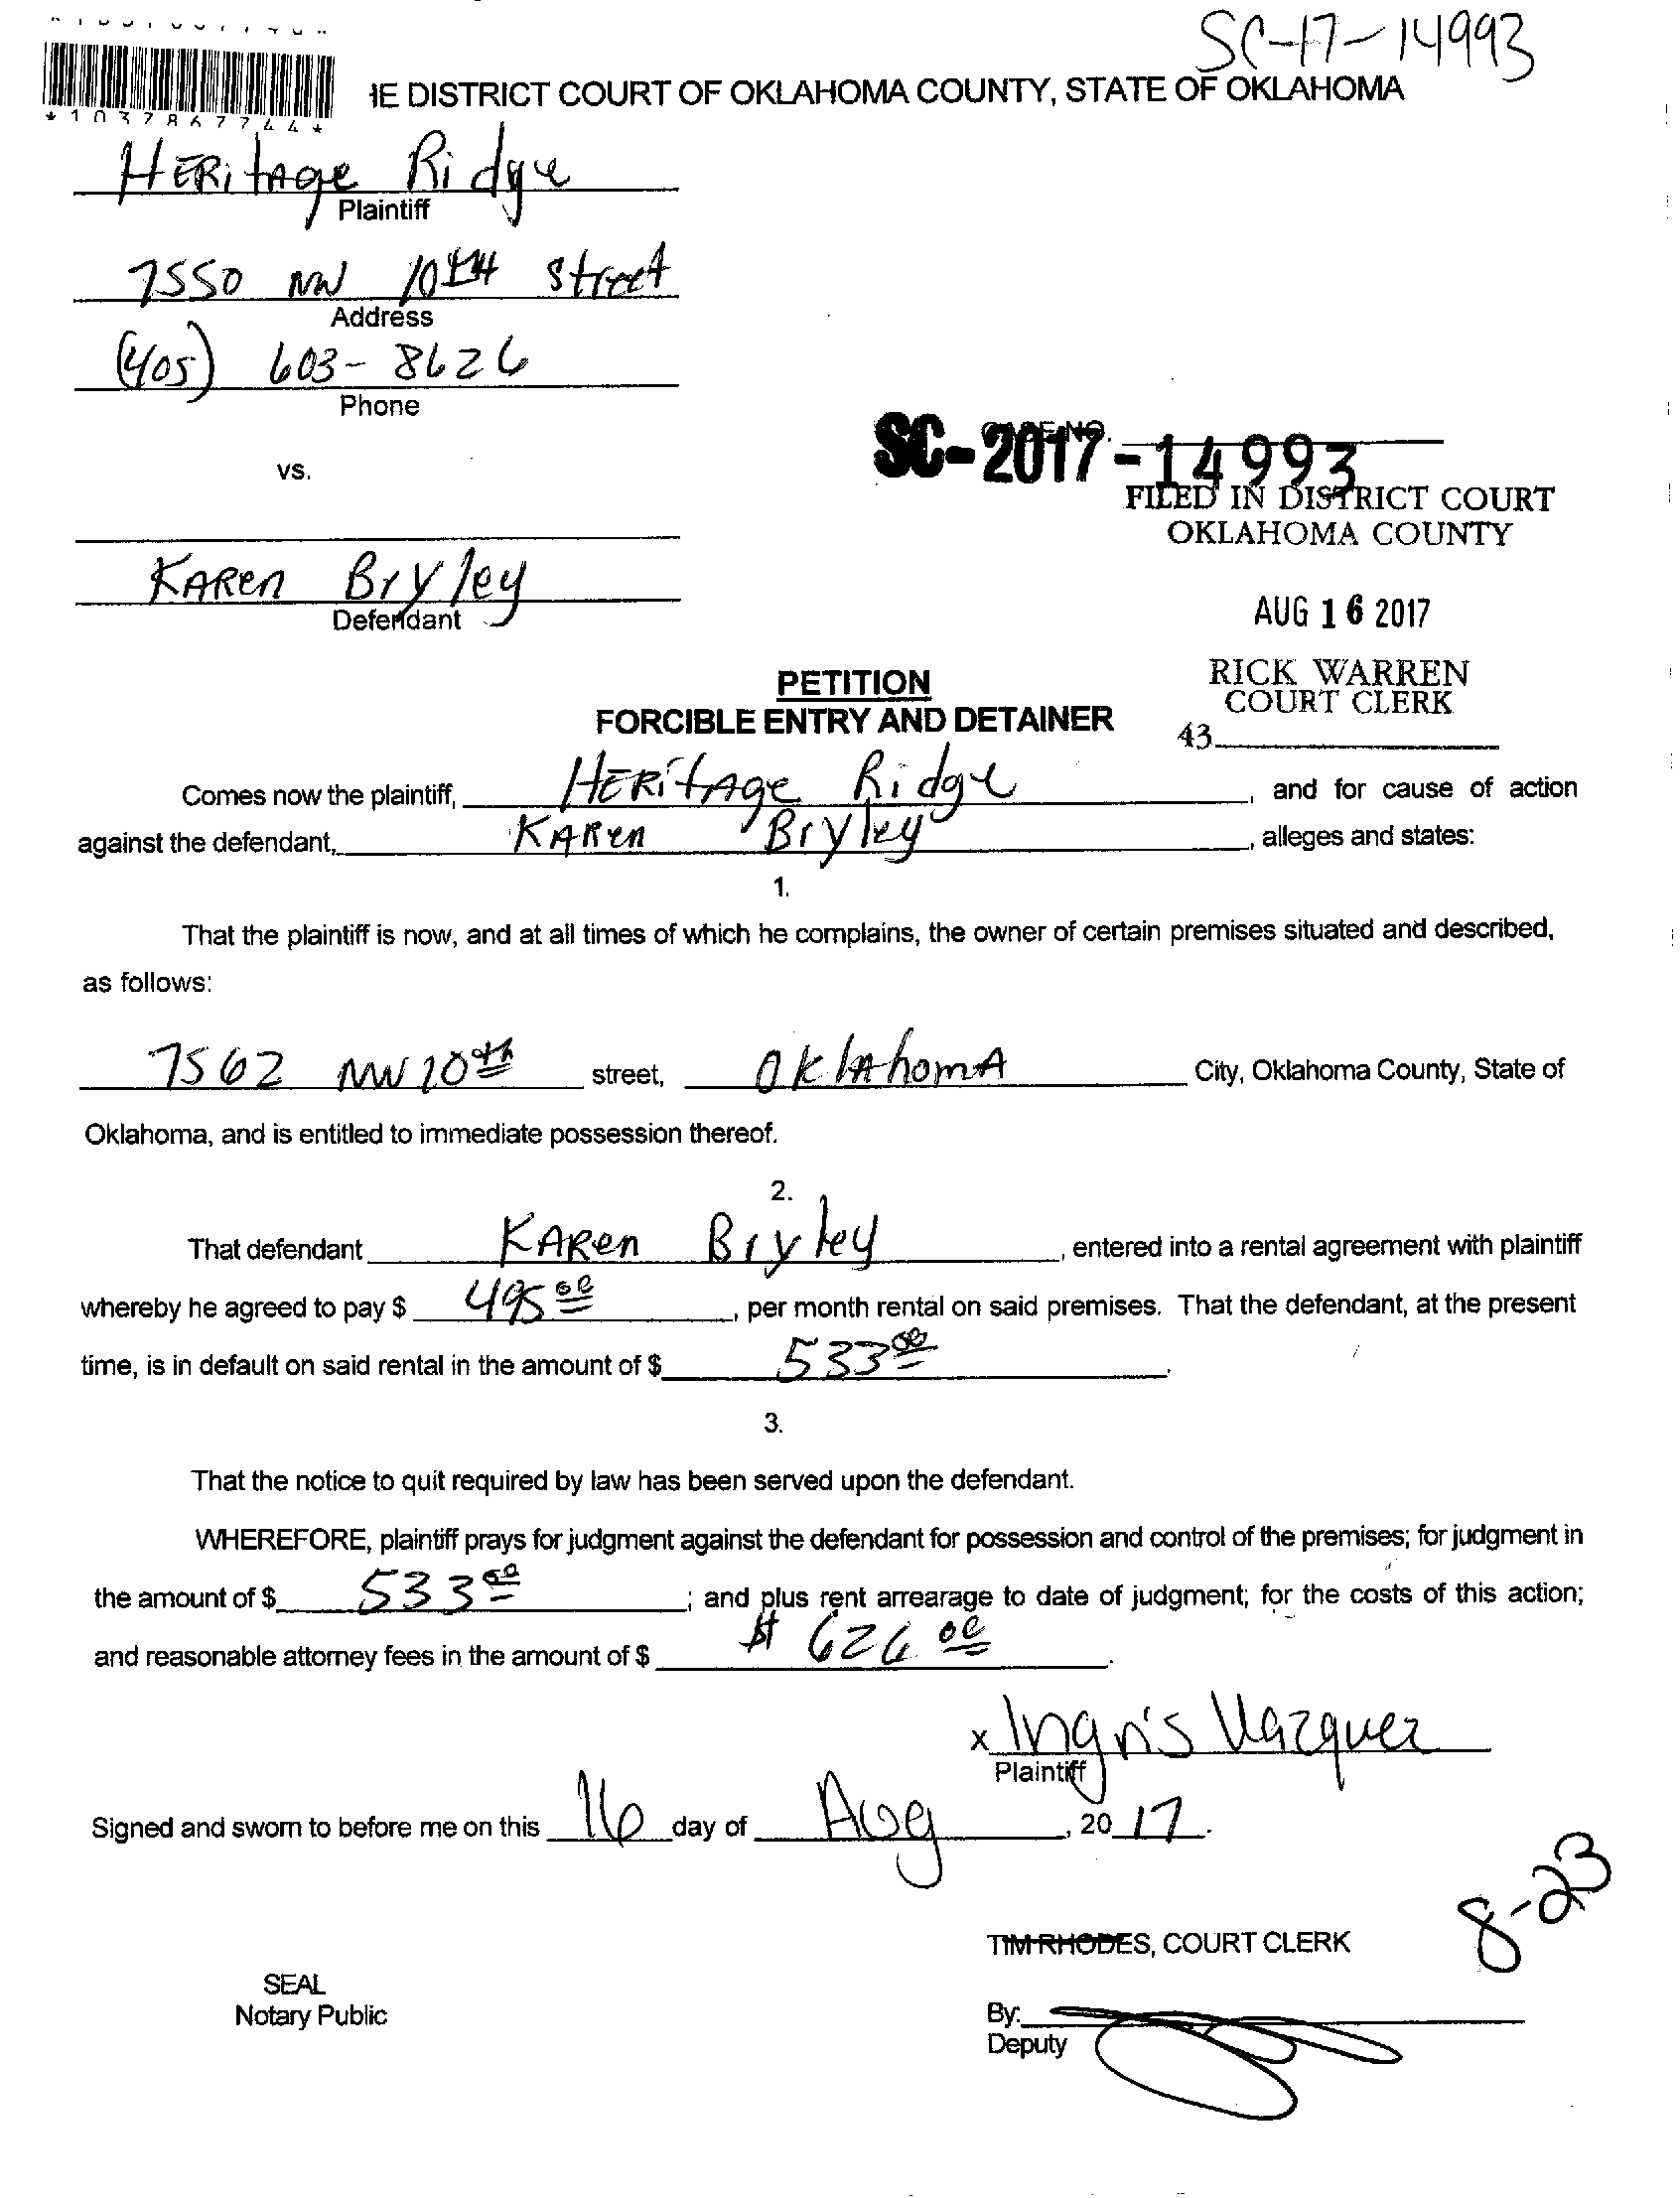 SC-17-14993
*1037867744*
HE DISTRICT COURT OF OKLAHOMA COUNTY, STATE OF OKLAHOMA
HERitAge Ridge
Plaintiff
7550 NW 10TH street
Address
(405) 603-8626
Phone
CASE NO.
SC-2017-14993
vs.
FILED IN DISTRICT COURT
OKLAHOMA COUNTY
KAREN Bryley
Defendant
AUG 16 2017
RICK WARREN
COURT CLERK
43
PETITION
FORCIBLE ENTRY AND DETAINER
Comes now the plaintiff, HERitAge Ridge, and for cause of action
against the defendant, KAREN Bryley, alleges and states:
1.
That the plaintiff is now, and at all times of which he complains, the owner of certain premises situated and described,
as follows:
7562 NW 10th street, OklAhomA City, Oklahoma County, State of
Oklahoma, and is entitled to immediate possession thereof.
2.
That defendant KAREN Bryley, entered into a rental agreement with plaintiff
whereby he agreed to pay $ 495 00, per month rental on said premises. That the defendant, at the present
time, is in default on said rental in the amount of $ 533 00.
3.
That the notice to quit required by law has been served upon the defendant.
WHEREFORE, plaintiff prays for judgment against the defendant for possession and control of the premises; for judgment in
the amount of $ 533 00; and plus rent arrearage to date of judgment; for the costs of this action;
and reasonable attorney fees in the amount of $ $ 626 00.
x Ingris Vazquez
Plaintiff
Signed and sworn to before me on this 16 day of Aug, 20 17.
8-23
TIM RHODES, COURT CLERK
SEAL
Notary Public
By:
Deputy